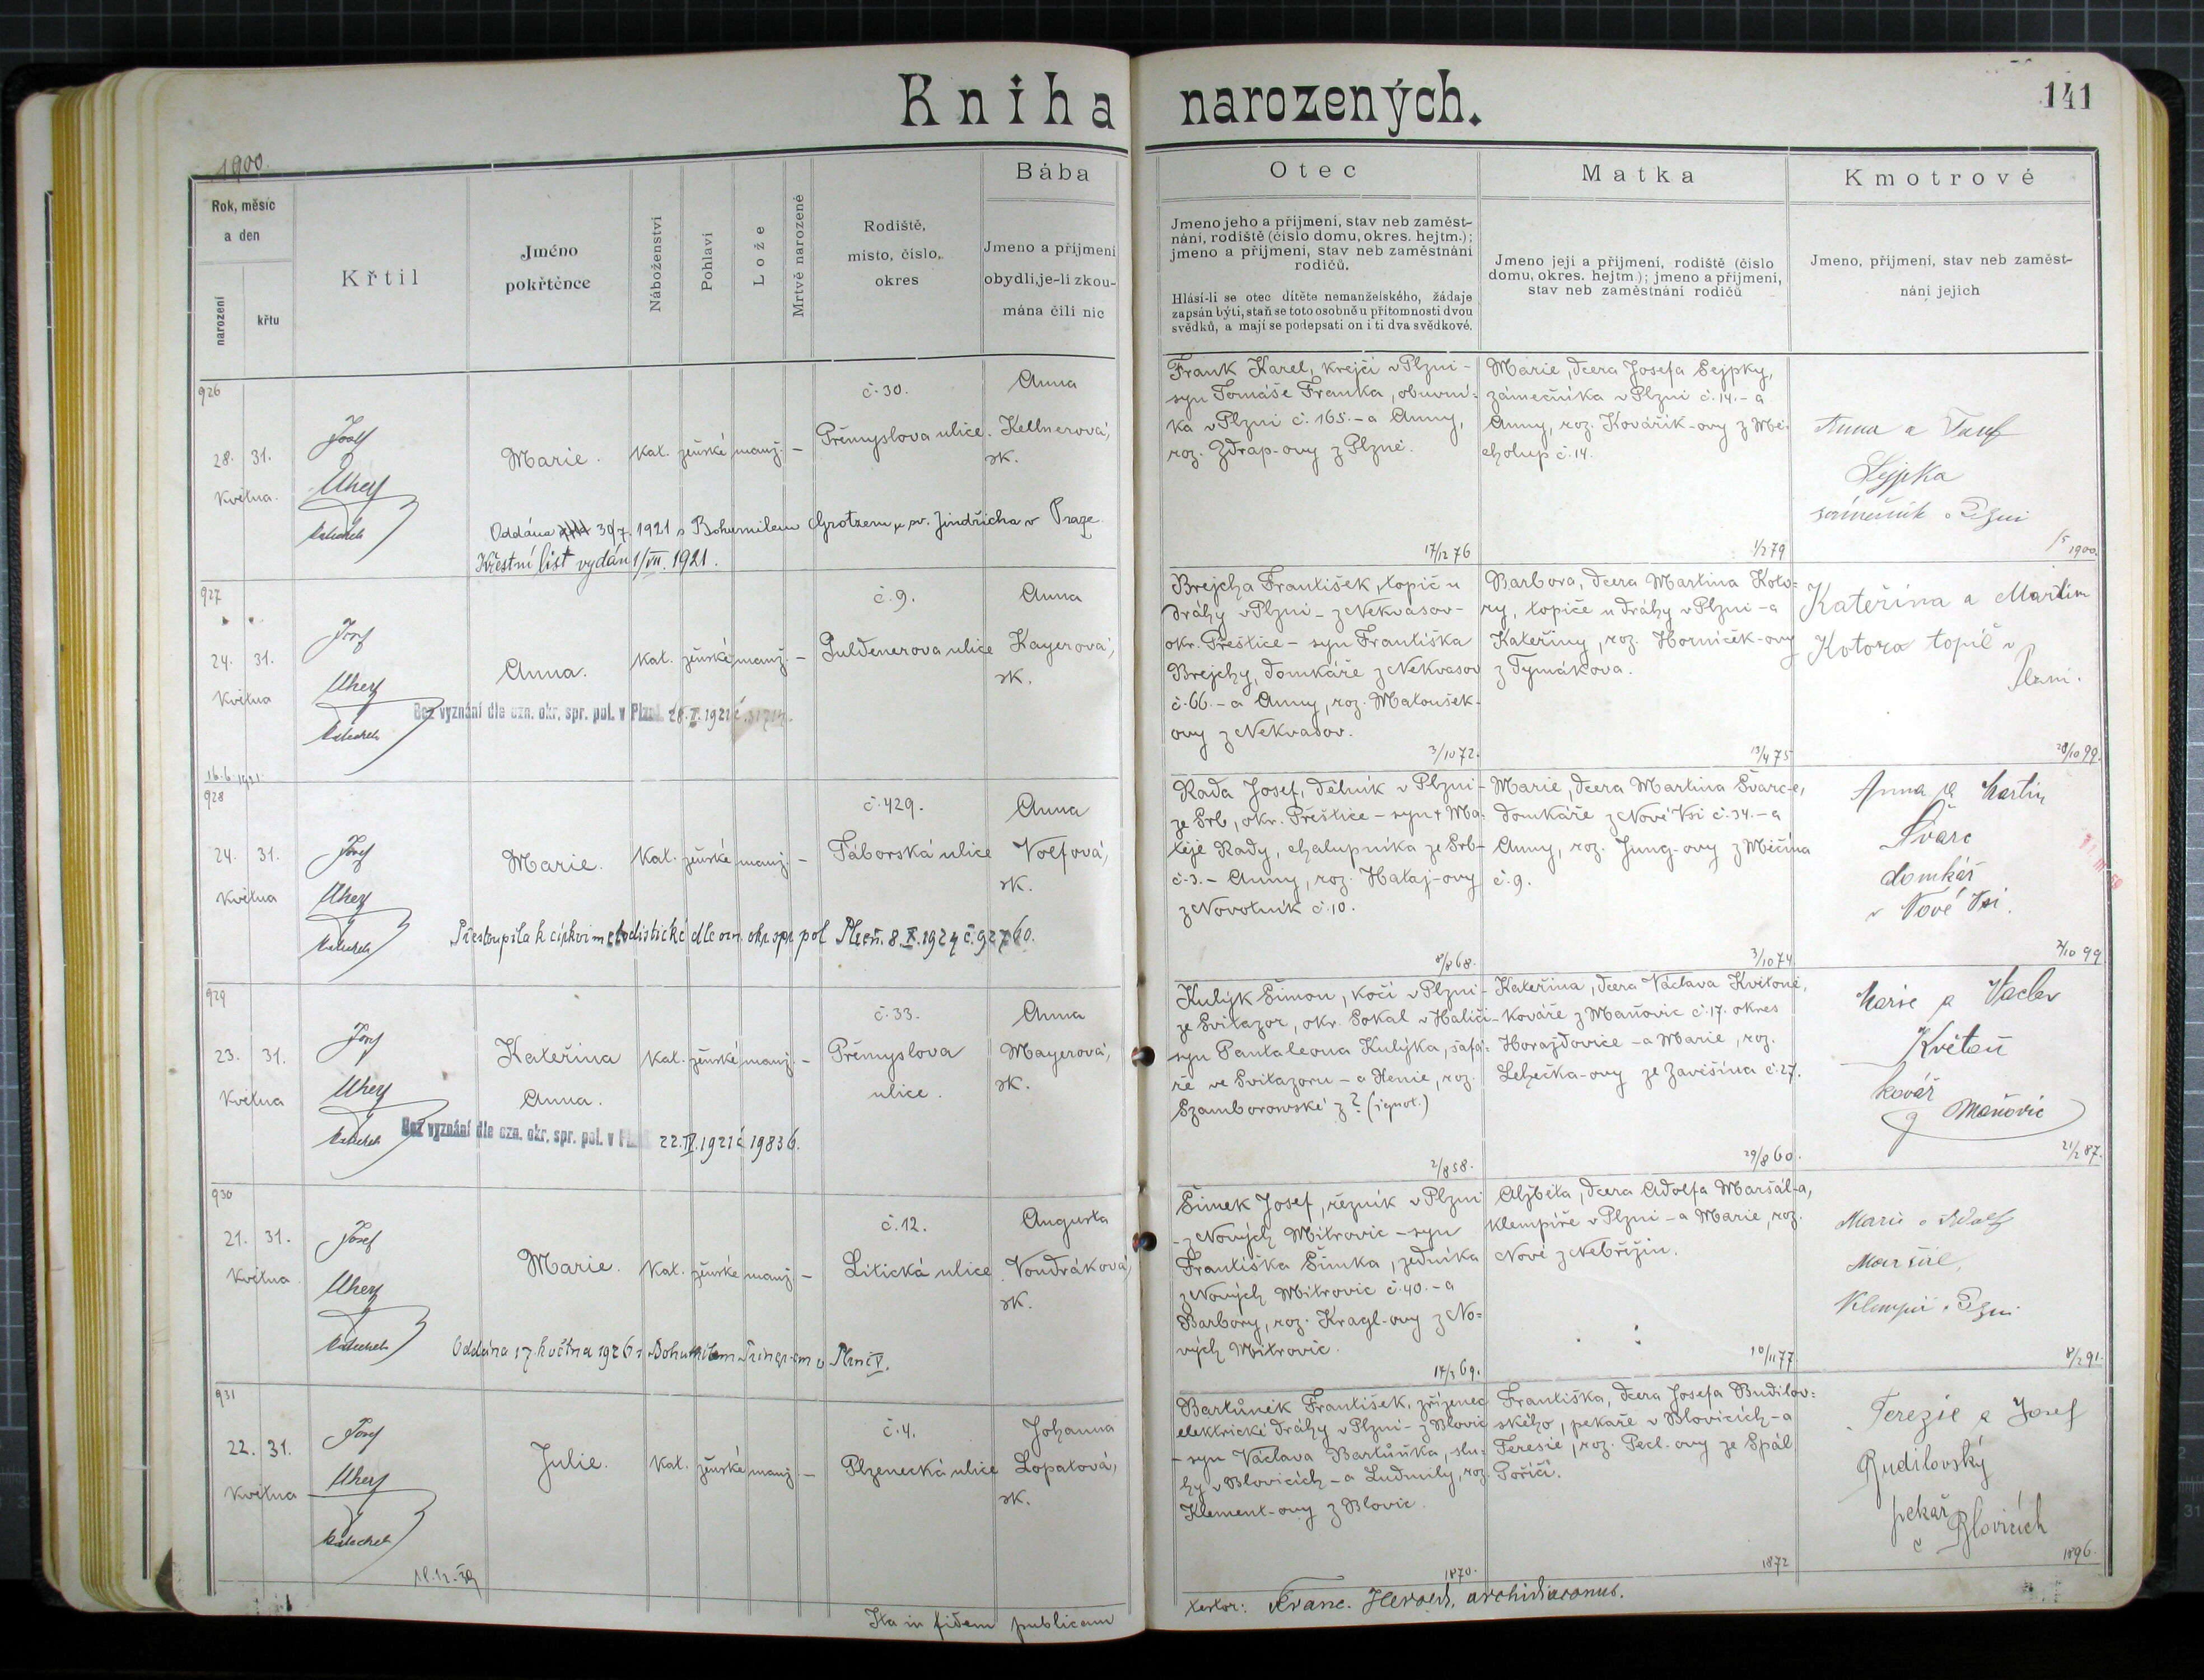 Kniha narozených.
141
1900.
Rok, měsíc
a den
narození
křtu
Křtil
Jméno
pokřtěnce
Náboženství
Pohlaví
Lože
Mrtvě narozené
Rodiště,
místo, číslo,
okres
Bába
Jmeno a příjmení
obydlí, je-li zkou-
mána čili nic
Otec
Jmeno jeho a příjmení, stav neb zaměst-
nání, rodiště (číslo domu, okres. hejtm.);
jmeno a příjmení, stav neb zaměstnání
rodičů.
Hlásí-li se otec dítěte nemanželského, žádaje
zapsán býti, staň se toto osobně u přítomnosti dvou
svědků, a mají se podepsati on i ti dva svědkové.
Matka
Jmeno její a příjmení, rodiště (číslo
domu, okres. hejtm.); jmeno a příjmení,
stav neb zaměstnání rodičů
Kmotrové
Jmeno, příjmení, stav neb zaměst-
nání jejich
926
28. 31.
Května
Josef
Uherz
Marie.
kat. ženské manž. –
č. 30.
Přemyslova ulice.
Anna
Kellnerová,
zk.
Oddána 30/7. 1921 s Bohumilem Grotzem u sv. Jindřicha v Praze
Křestní list vydán 1/VII. 1921.
Frank Karel, krejčí v Plzni –
syn Tomáše Franka, obuvní-
ka v Plzni č. 165. – a Anny,
roz. Zdrap-ovy z Plzně.
17/12 76
Marie, dcera Josefa Sejpky,
zámečníka v Plzni č. 14. – a
Anny, roz. Kovářík-ovy z Mě-
cholup č. 14.
1/2 79
Anna a Josef
Sejpka
zámečník v Plzni
1900.
927
24. 31.
Května
Josef
Uherz
Anna.
kat. ženské manž. –
č. 9.
Puldenerova ulice
Anna
Kayerová,
zk.
Bez vyznání dle ozn. okr. spr. pol. v Plzni 28. V. 1921 č.
16. 6. 1921.
Brejcha František, topič u
dráhy v Plzni – z Nekvasov –
okr. Přeštice – syn Františka
Brejchy, domkáře z Nekvasov
č. 66. – a Anny, roz. Matoušek-
ovy z Nekvasov.
3/10 72.
Barbora, dcera Martina Koto-
ry, topiče u dráhy v Plzni – a
Kateřiny, roz. Horníček-ovy
z Tymákova.
13/4 75
Kateřina a Martin
Kotora topič v
Plzni.
28/10 99.
928
24. 31.
Května
Josef
Uherz
Marie.
kat. ženské manž. –
č. 429.
Táborská ulice
Anna
Volfová,
zk.
Přestoupila k církvi metodistické dle ozn. okr. spr. pol Plzeň. 8. X. 1924 č. 92760.
Rada Josef, dělník v Plzni –
ze Srb, okr. Přeštice – syn † Ma-
těje Rady, chalupníka ze Srb –
č. 3. – Anny, roz. Hataj-ovy
z Novotník č. 10.
8/8 68.
Marie, dcera Martina Švarc-e,
domkáře z Nové Vsi č. 34. – a
Anny, roz. Jung-ovy z Měčína
č. 9.
3/10 74
Anna a Martin
Švarc
domkář
v Nové Vsi.
929
23. 31.
Května
Josef
Uherz
Kateřina
Anna.
kat. ženské manž. –
č. 33.
Přemyslova
ulice.
Anna
Mayerová,
zk.
Bez vyznání dle ozn. okr. spr. pol. v Plzni 22. IV. 1921 č 19836.
Kulýk Šimon, kočí v Plzni –
ze Svitazor, okr. Sokal v Haliči –
syn Pantaleona Kulýka, šafá-
ře ve Svitazoru – a Henie, roz.
Szamborowské z ? (ignot.)
2/8 58.
Kateřina, dcera Václava Květoně,
kováře z Maňovic č. 17. okres
Horažďovice – a Marie, roz.
Lehečka-ovy ze Zavěšína č. 27.
29/8 60.
Marie a Václav
Květoň
kovář
z Maňovic
21/2 87.
930
21. 31.
Května
Josef
Uherz
Marie.
kat. ženské manž. –
č. 12.
Litická ulice
Augusta
Vondráková,
zk.
Oddána 17. května 1926 s Bohumilem v Plzni
Šimek Josef, řezník v Plzni
– z Nových Mitrovic – syn
Františka Šimka, zedníka
z Nových Mitrovic č. 40. – a
Barbory, roz. Kragl-ovy z No-
vých Mitrovic.
17/3 69.
Alžběta, dcera Adolfa Maršál-a,
klempíře v Plzni – a Marie, roz.
Nové z Nebřežin.
10/11 77
Marie a Adolf
Maršál,
klempíř v Plzni
8/2 91.
931
22. 31.
Května
Josef
Uherz
Julie.
kat. ženské manž. –
č. 4.
Plzenecká ulice
Johanna
Lopatová,
zk.
Bartůněk František, zřízenec
elektrické dráhy v Plzni – z Blovic
– syn Václava Bartůňka, slu-
hy v Blovicích – a Ludmily, roz.
Klement-ovy z Blovic.
1870.
Františka, dcera Josefa Budilov-
ského, pekaře v Blovicích – a
Teresie, roz. Pecl-ovy ze Spál.
Poříčí.
1872
Terezie a Josef
Budilovský
pekař
v Blovicích
1896.
Ita in fidem publicam
testor: Franc. Herold, archidiaconus.